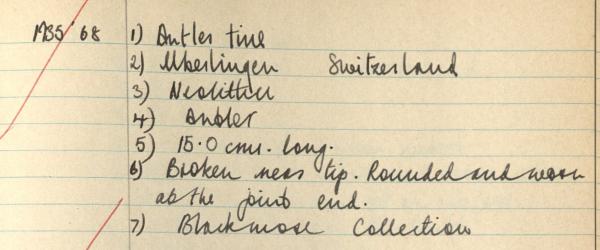 1735'68 1) Antler tine
2) Uberlingen Switzerland
3) Neolithic
4) Antler
5) 15.0 cms. long.
6) Broken near tip. Rounded and worn
at the point end.
7) Blackmore Collection